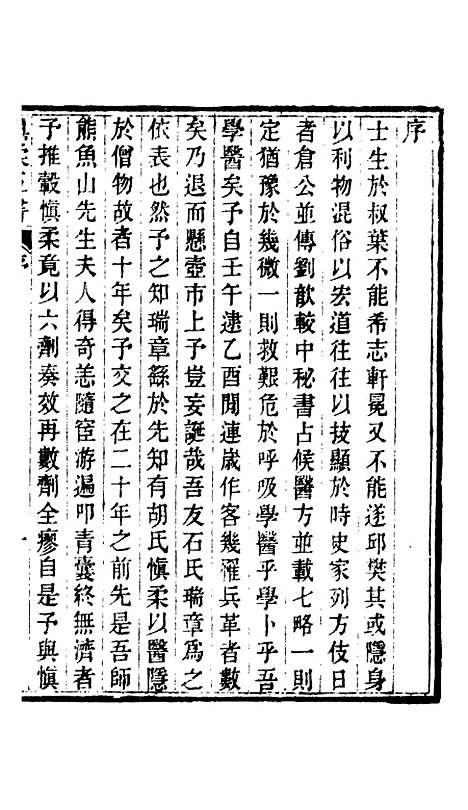 序
士生於叔葉不能希志軒冕又不能遂邱樊其或隱身
以利物混俗以宏道往往以技顯於時史家列方伎日
者倉公並傳劉歆較中秘書占候醫方並載七略一則
定猶豫於幾微一則救艱危於呼吸學醫乎學卜乎吾
學醫矣予自壬午逮乙酉閒連歲作客幾罹兵革者數
矣乃退而懸壺市上予豈妄誕哉吾友石氏瑞章爲之
依表也然予之知瑞章繇於先知有胡氏愼柔以醫隱
於僧物故者十年矣予交之在二十年之前先是吾師
熊魚山先生夫人得奇恙隨宦游遍叩青囊終無濟者
子推轂愼柔竟以六劑奏效再數劑全瘳自是予與愼
序
一